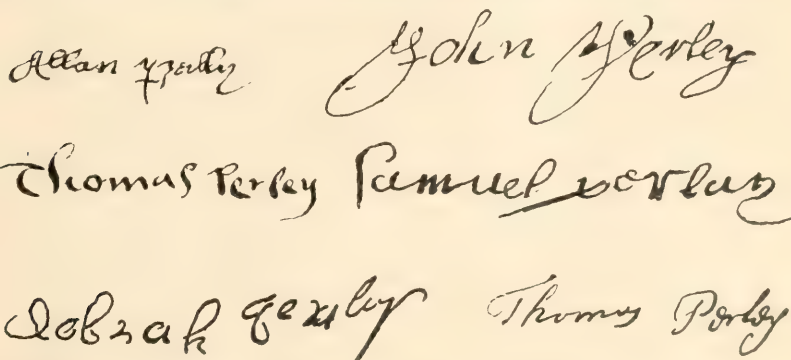 Allan Pzally John Perley
Thomas Perley Samuel perlay
debrah Perley Thomas Perley